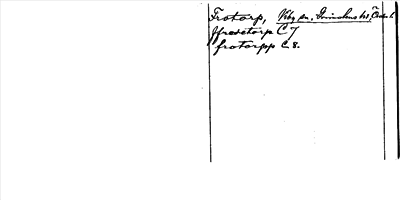 Frotorp, Viby sn, Grimstens hd,
ffrosetorp C 7
frotorpp C. 8.